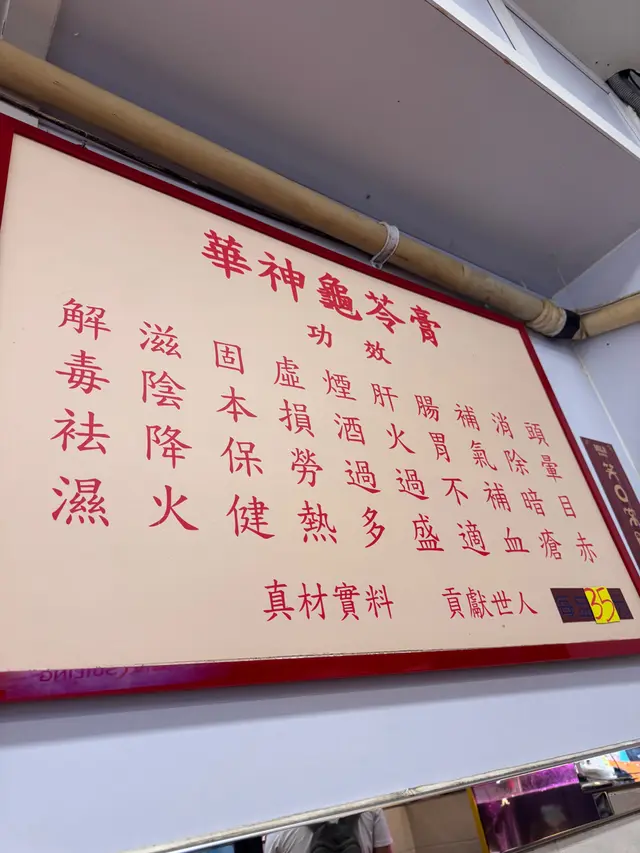 華神龜苓膏
功效
頭暈目赤
消除暗瘡
補氣補血
腸胃不適
肝火過盛
煙酒過多
虛損勞熱
固本保健
滋陰降火
解毒祛濕
真材實料 貢獻世人
35